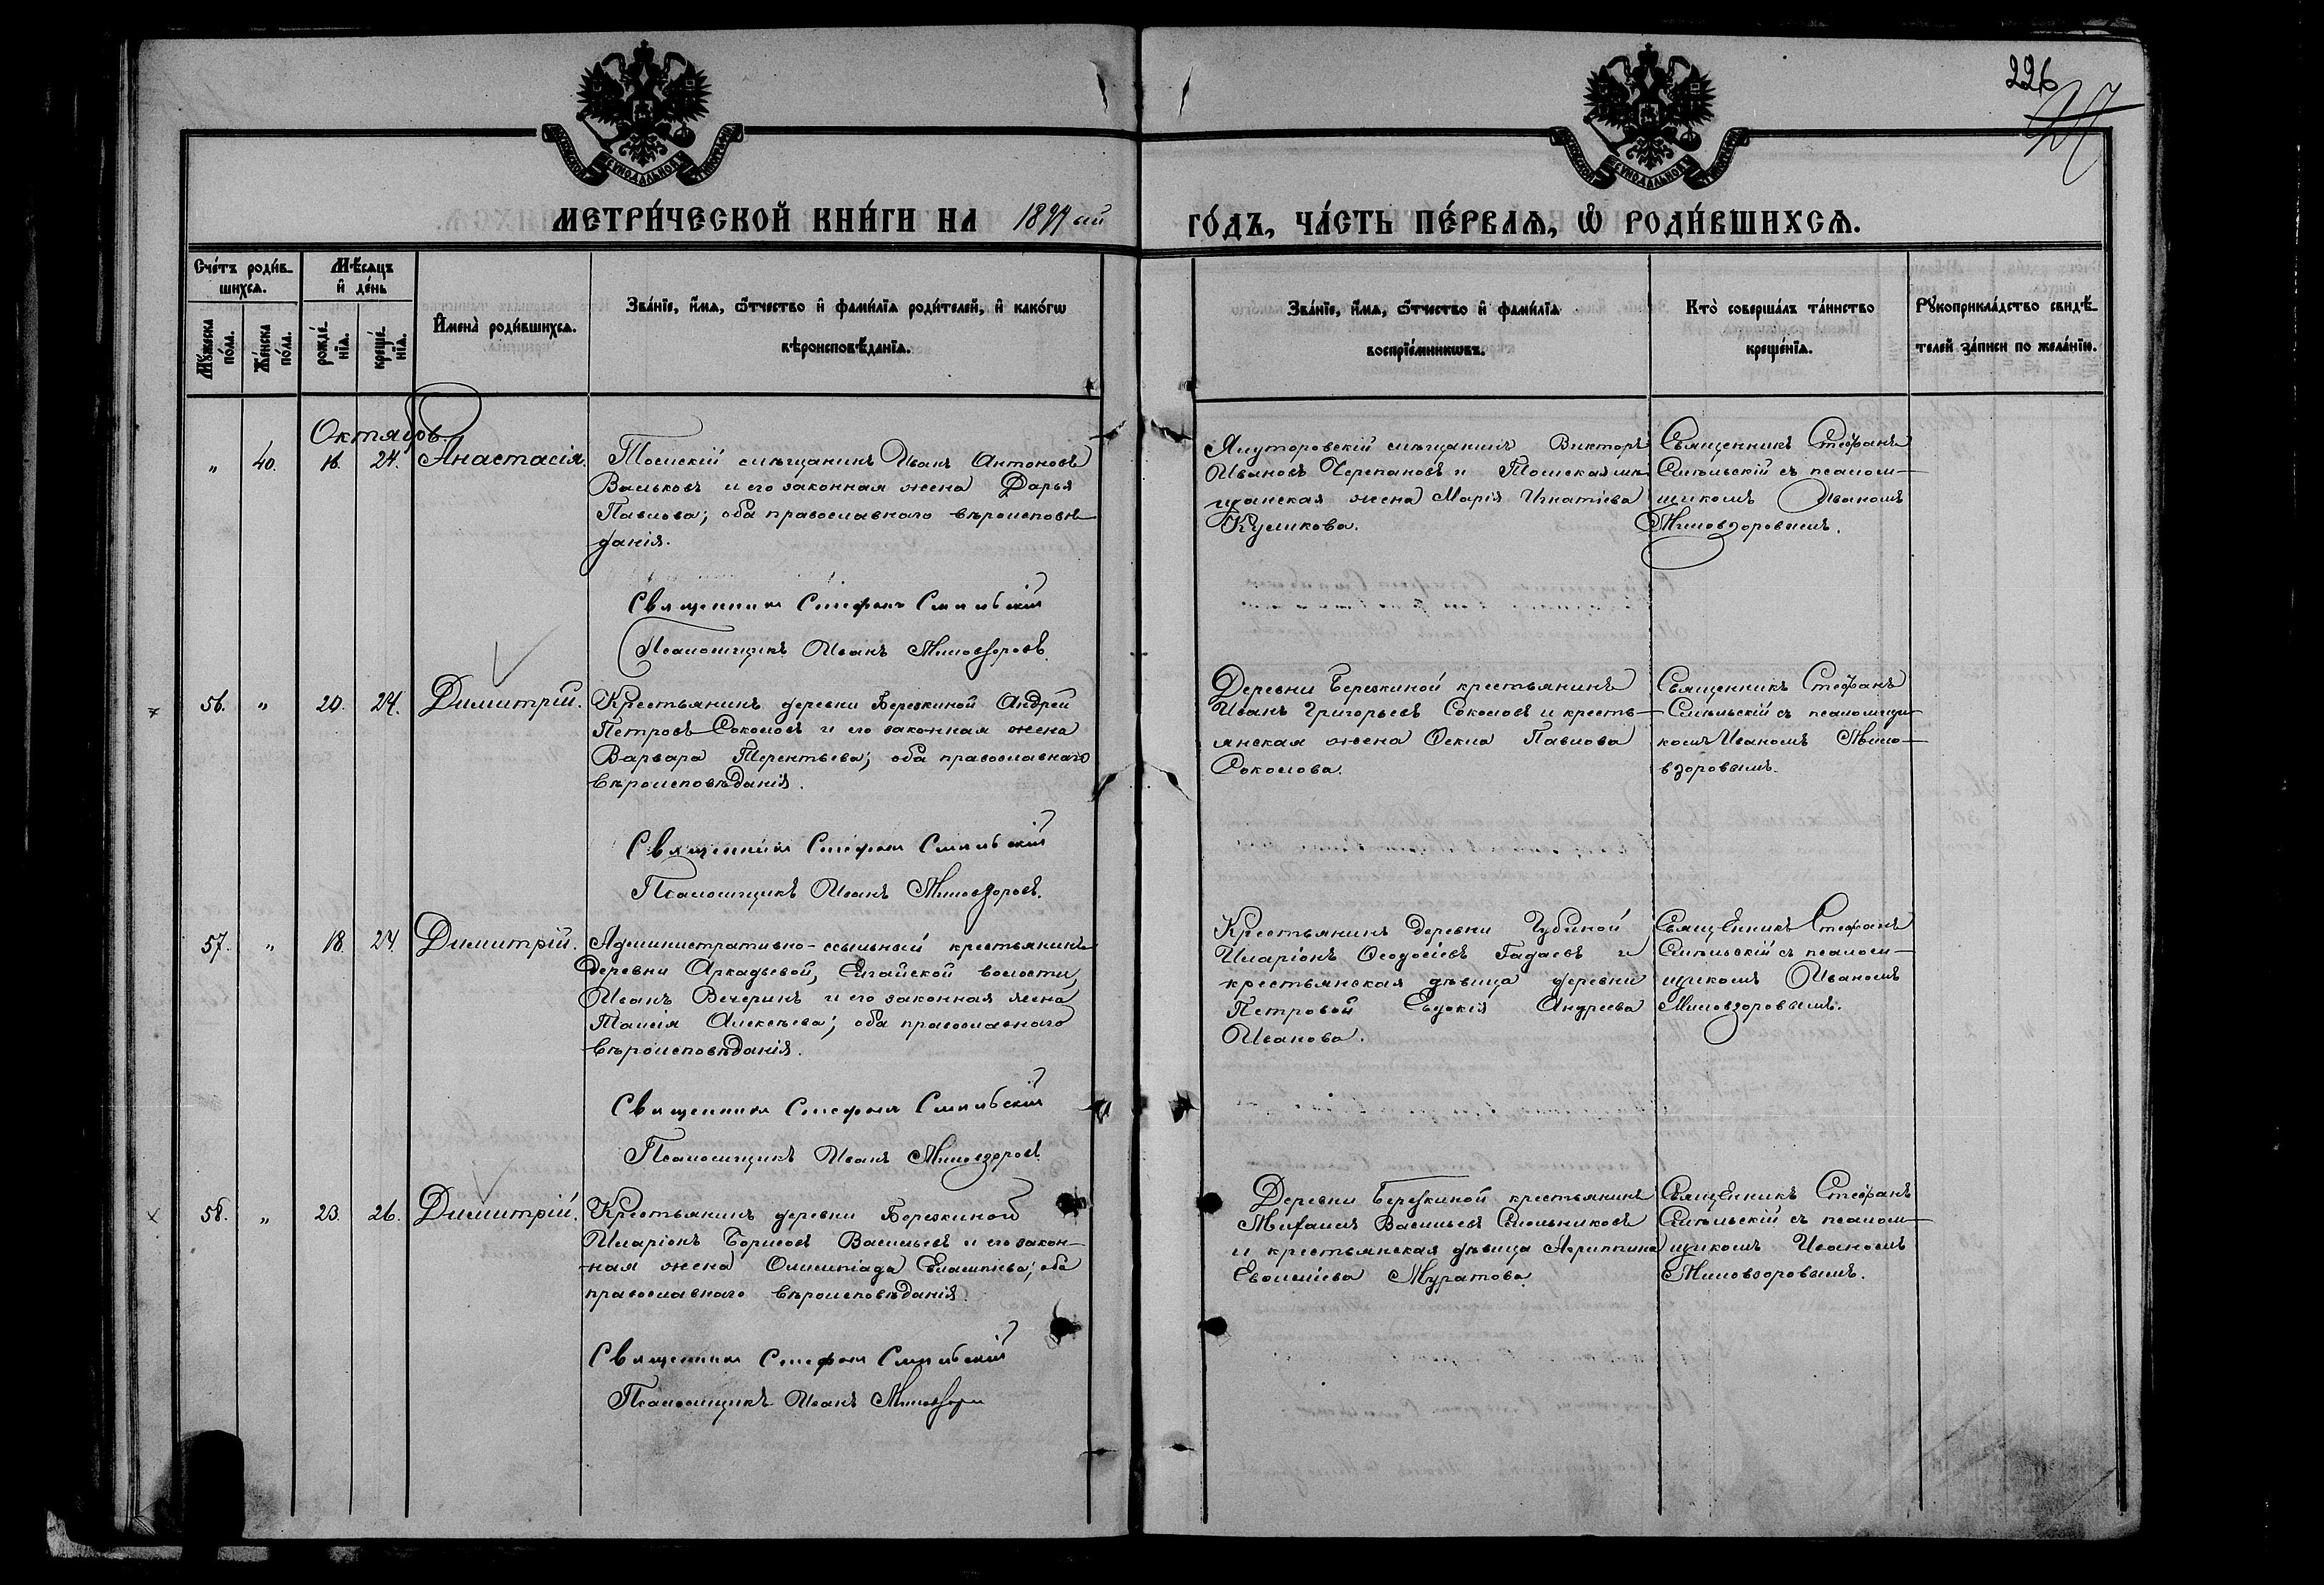 226
МЕТРИ́ЧЕСКОЙ КНИ́ГИ НА 1899 ый ГО́ДЪ, ЧА́СТЬ ПЕ́РВАЯ, Ѽ РОДИ́ВШИХСЯ.
Сче́тъ роди́в-
шихся.
Мѣ́сяцъ
и҆ де́нь
Мꙋ́жеска
по́ла.
Же́нска
по́ла.
рожде́-
нїѧ.
креще́-
нїѧ.
И҆мена̀ роди́вшихся.
Зва́нїе, и҆́мя, ѻ҆́тчество и҆ фами́лїя роди́телей, и҆ како́гѡ
вѣроисповѣ́данїя.
Зва́нїе, и҆́мя, ѻ҆́тчество и҆ фами́лїя
воспрїе́мникѡвъ.
Кто̀ соверша́лъ та́инство
креще́нїя.
Рꙋкоприкла́дство свидѣ́-
телей за́писи по жела́нїю.
Октябрь.
„ 40. 16. 24. Анастасія.
Томскій мѣщанинъ Иванъ Антоновъ
Вальковъ и его законная жена Дарья
Павлова; оба православнаго вѣроисповѣ-
данія.
Священникъ Стефанъ Смѣльскій
Псаломщикъ Иванъ Миловзоровъ.
Ялуторовскій мѣщанинъ Викторъ
Ивановъ Черепановъ и Томская мѣ-
щанская жена Марія Игнатіева
Куликова.
Священникъ Стефанъ
Смѣльскій съ псалом-
щикомъ Иваномъ
Миловзоровымъ.
56. „ 20. 24. Димитрій.
Крестьянинъ деревни Березкиной Андрей
Петровъ Соколовъ и его законная жена
Варвара Терентьева; оба православнаго
вѣроисповѣданія.
Священникъ Стефанъ Смѣльскій
Псаломщикъ Иванъ Миловзоровъ.
Деревни Березкиной крестьянинъ
Иванъ Григорьевъ Соколовъ и кресть-
янская жена Ѳекла Павлова
Соколова.
Священникъ Стефанъ
Смѣльскій съ псаломщи-
комъ Иваномъ Мило-
взоровымъ.
57. „ 18. 24 Димитрій.
Административно-ссыльный крестьянинъ
деревни Аркадьевой, Елгайской волости,
Иванъ Вечеринъ и его законная жена
Таисія Алексѣева; оба православнаго
вѣроисповѣданія.
Священникъ Стефанъ Смѣльскій
Псаломщикъ Иванъ Миловзоровъ.
Крестьянинъ деревни Губиной
Иларіонъ Ѳеодосіевъ Гадаевъ и
крестьянская дѣвица деревни
Петровой Евдокія Андреева
Иванова.
Священникъ Стефанъ
Смѣльскій съ псалом-
щикомъ Иваномъ
Миловзоровымъ.
58. „ 23. 26. Димитрій.
Крестьянинъ деревни Березкиной
Иларіонъ Борисовъ Васильевъ и его закон-
ная жена Олимпіада; оба
православнаго вѣроисповѣданія.
Священникъ Стефанъ Смѣльскій
Псаломщикъ Иванъ Миловзоровъ
Деревни Березкиной крестьянинъ
Михаилъ Васильевъ Смольниковъ
и крестьянская дѣвица Агриппина
Муратова.
Священникъ Стефанъ
Смѣльскій съ псалом-
щикомъ Иваномъ
Миловзоровымъ.